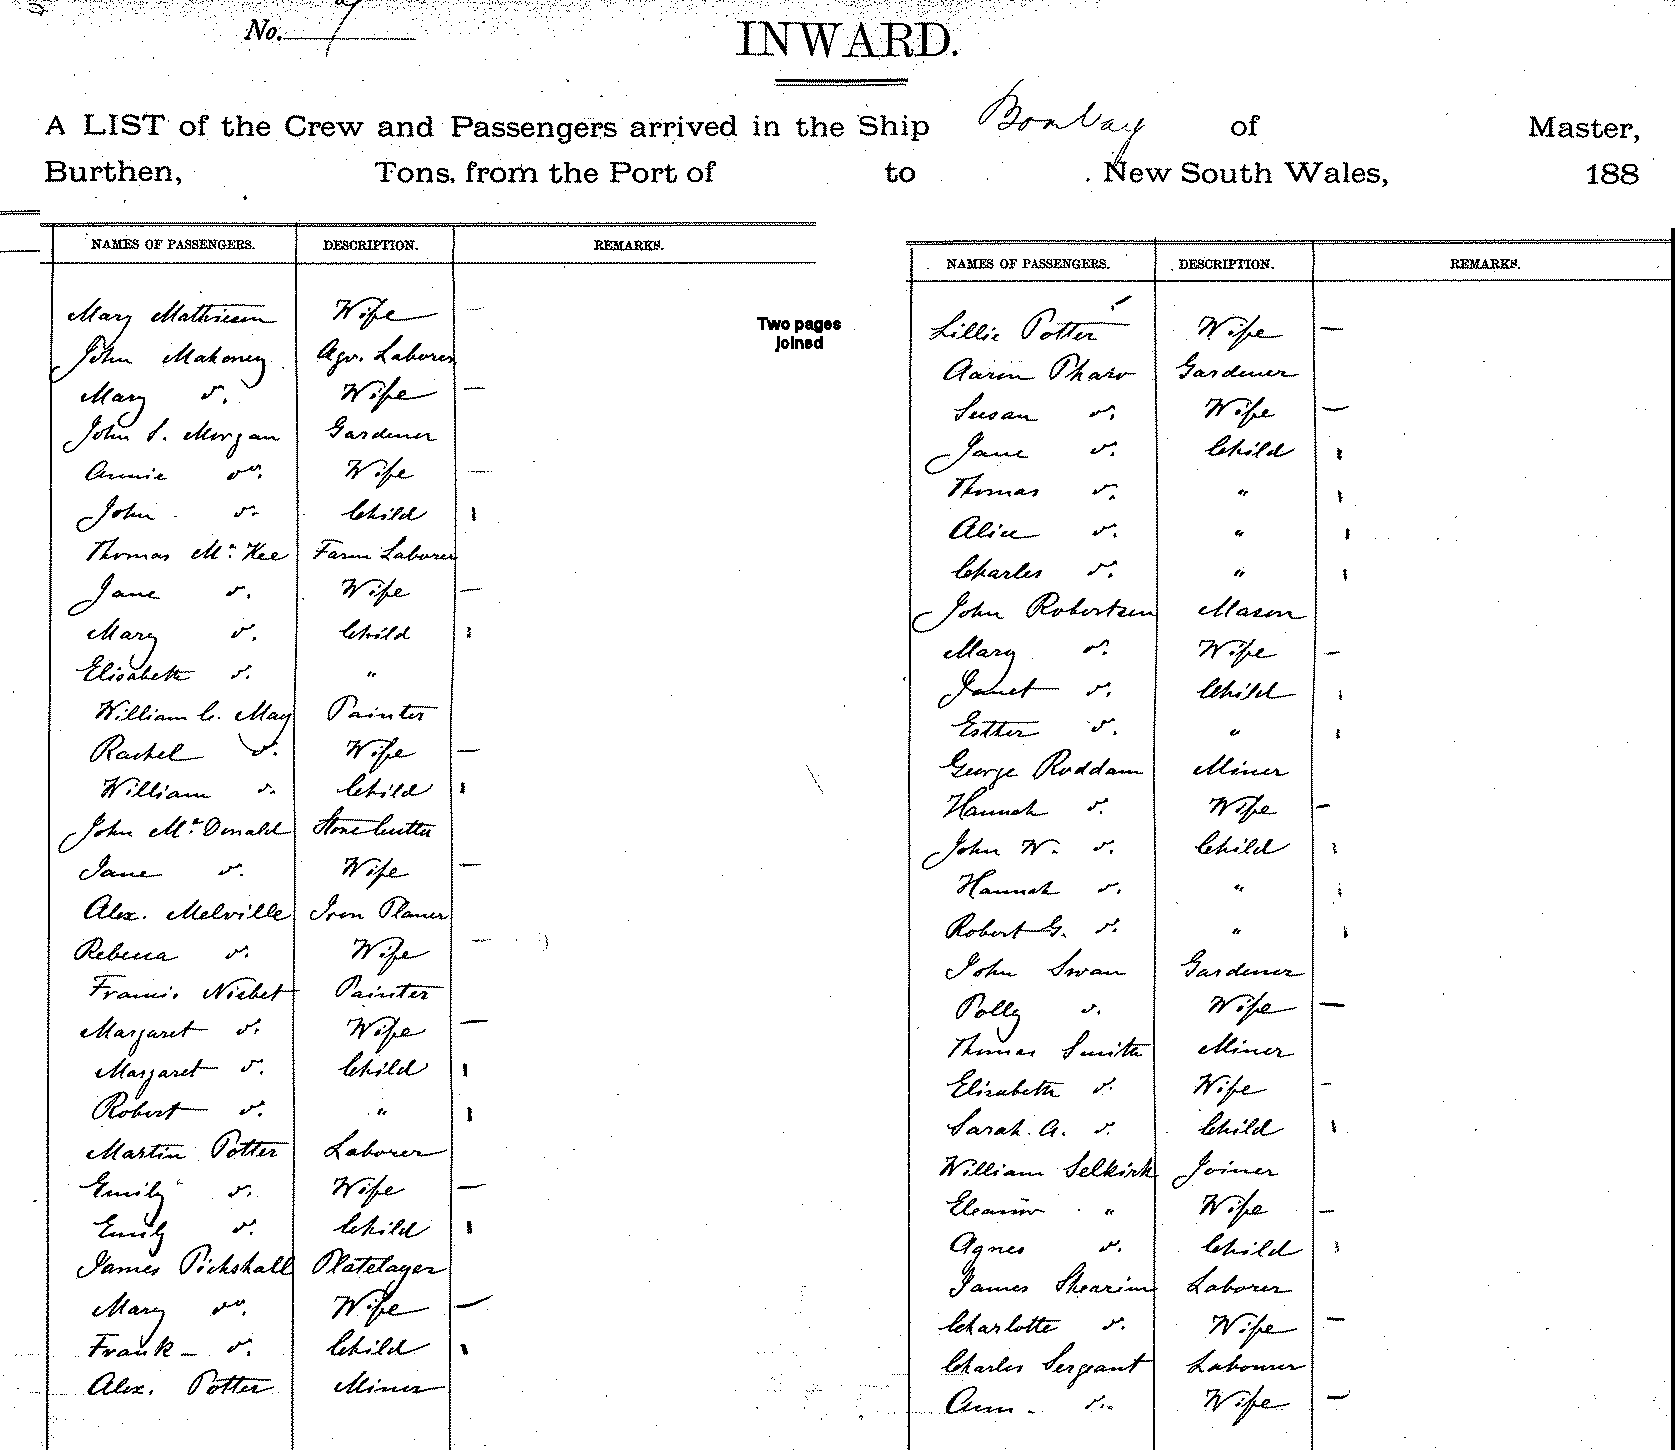 No.
INWARD.
A LIST of the Crew and Passengers arrived in the Ship Bombay of Master,
Burthen, Tons. from the Port of to New South Wales, 188
NAMES OF PASSENGERS. DESCRIPTION. REMARKS.
Mary Mathieson Wife —
John Mahoney Agr. Laborer
Mary do. Wife —
John S. Morgan Gardener
Annie do. Wife —
John do. Child ı
Thomas Mc. Kee Farm Laborer
Jane do. Wife —
Mary do. Child ı
Elisabeth do. "
William C. May Painter
Rachel do. Wife —
William do. Child ı
John Mc. Donald Stone Cutter
Jane do. Wife —
Alex. Melville Iron Planer
Rebecca do. Wife —
Francis Nisbet Painter
Margaret do. Wife —
Margaret do. Child ı
Robert do. " ı
Martin Potter Laborer
Emily do. Wife —
Emily do. Child ı
James Pickshall Platelayer
Mary do. Wife —
Frank do. Child ı
Alex. Potter Miner
Two pages
joined
NAMES OF PASSENGERS. DESCRIPTION. REMARKS.
Lillie Potter Wife —
Aaron Pharo Gardener
Susan do. Wife —
Jane do. Child ı
Thomas do. " ı
Alice do. " ı
Charles do. " ı
John Robertson Mason
Mary do. Wife —
Janet do. Child ı
Esther do. " ı
George Roddam Miner
Hannah do. Wife —
John W. do. Child ı
Hannah do. " ı
Robert G. do. " ı
John Swan Gardener
Polly do. Wife —
Thomas Smith Miner
Elizabeth do. Wife —
Sarah A. do. Child ı
William Selkirk Joiner
Eleanor " Wife —
Agnes do. Child ı
James Shearim Laborer
Charlotte do. Wife —
Charles Sergeant Labourer
Ann do. Wife —